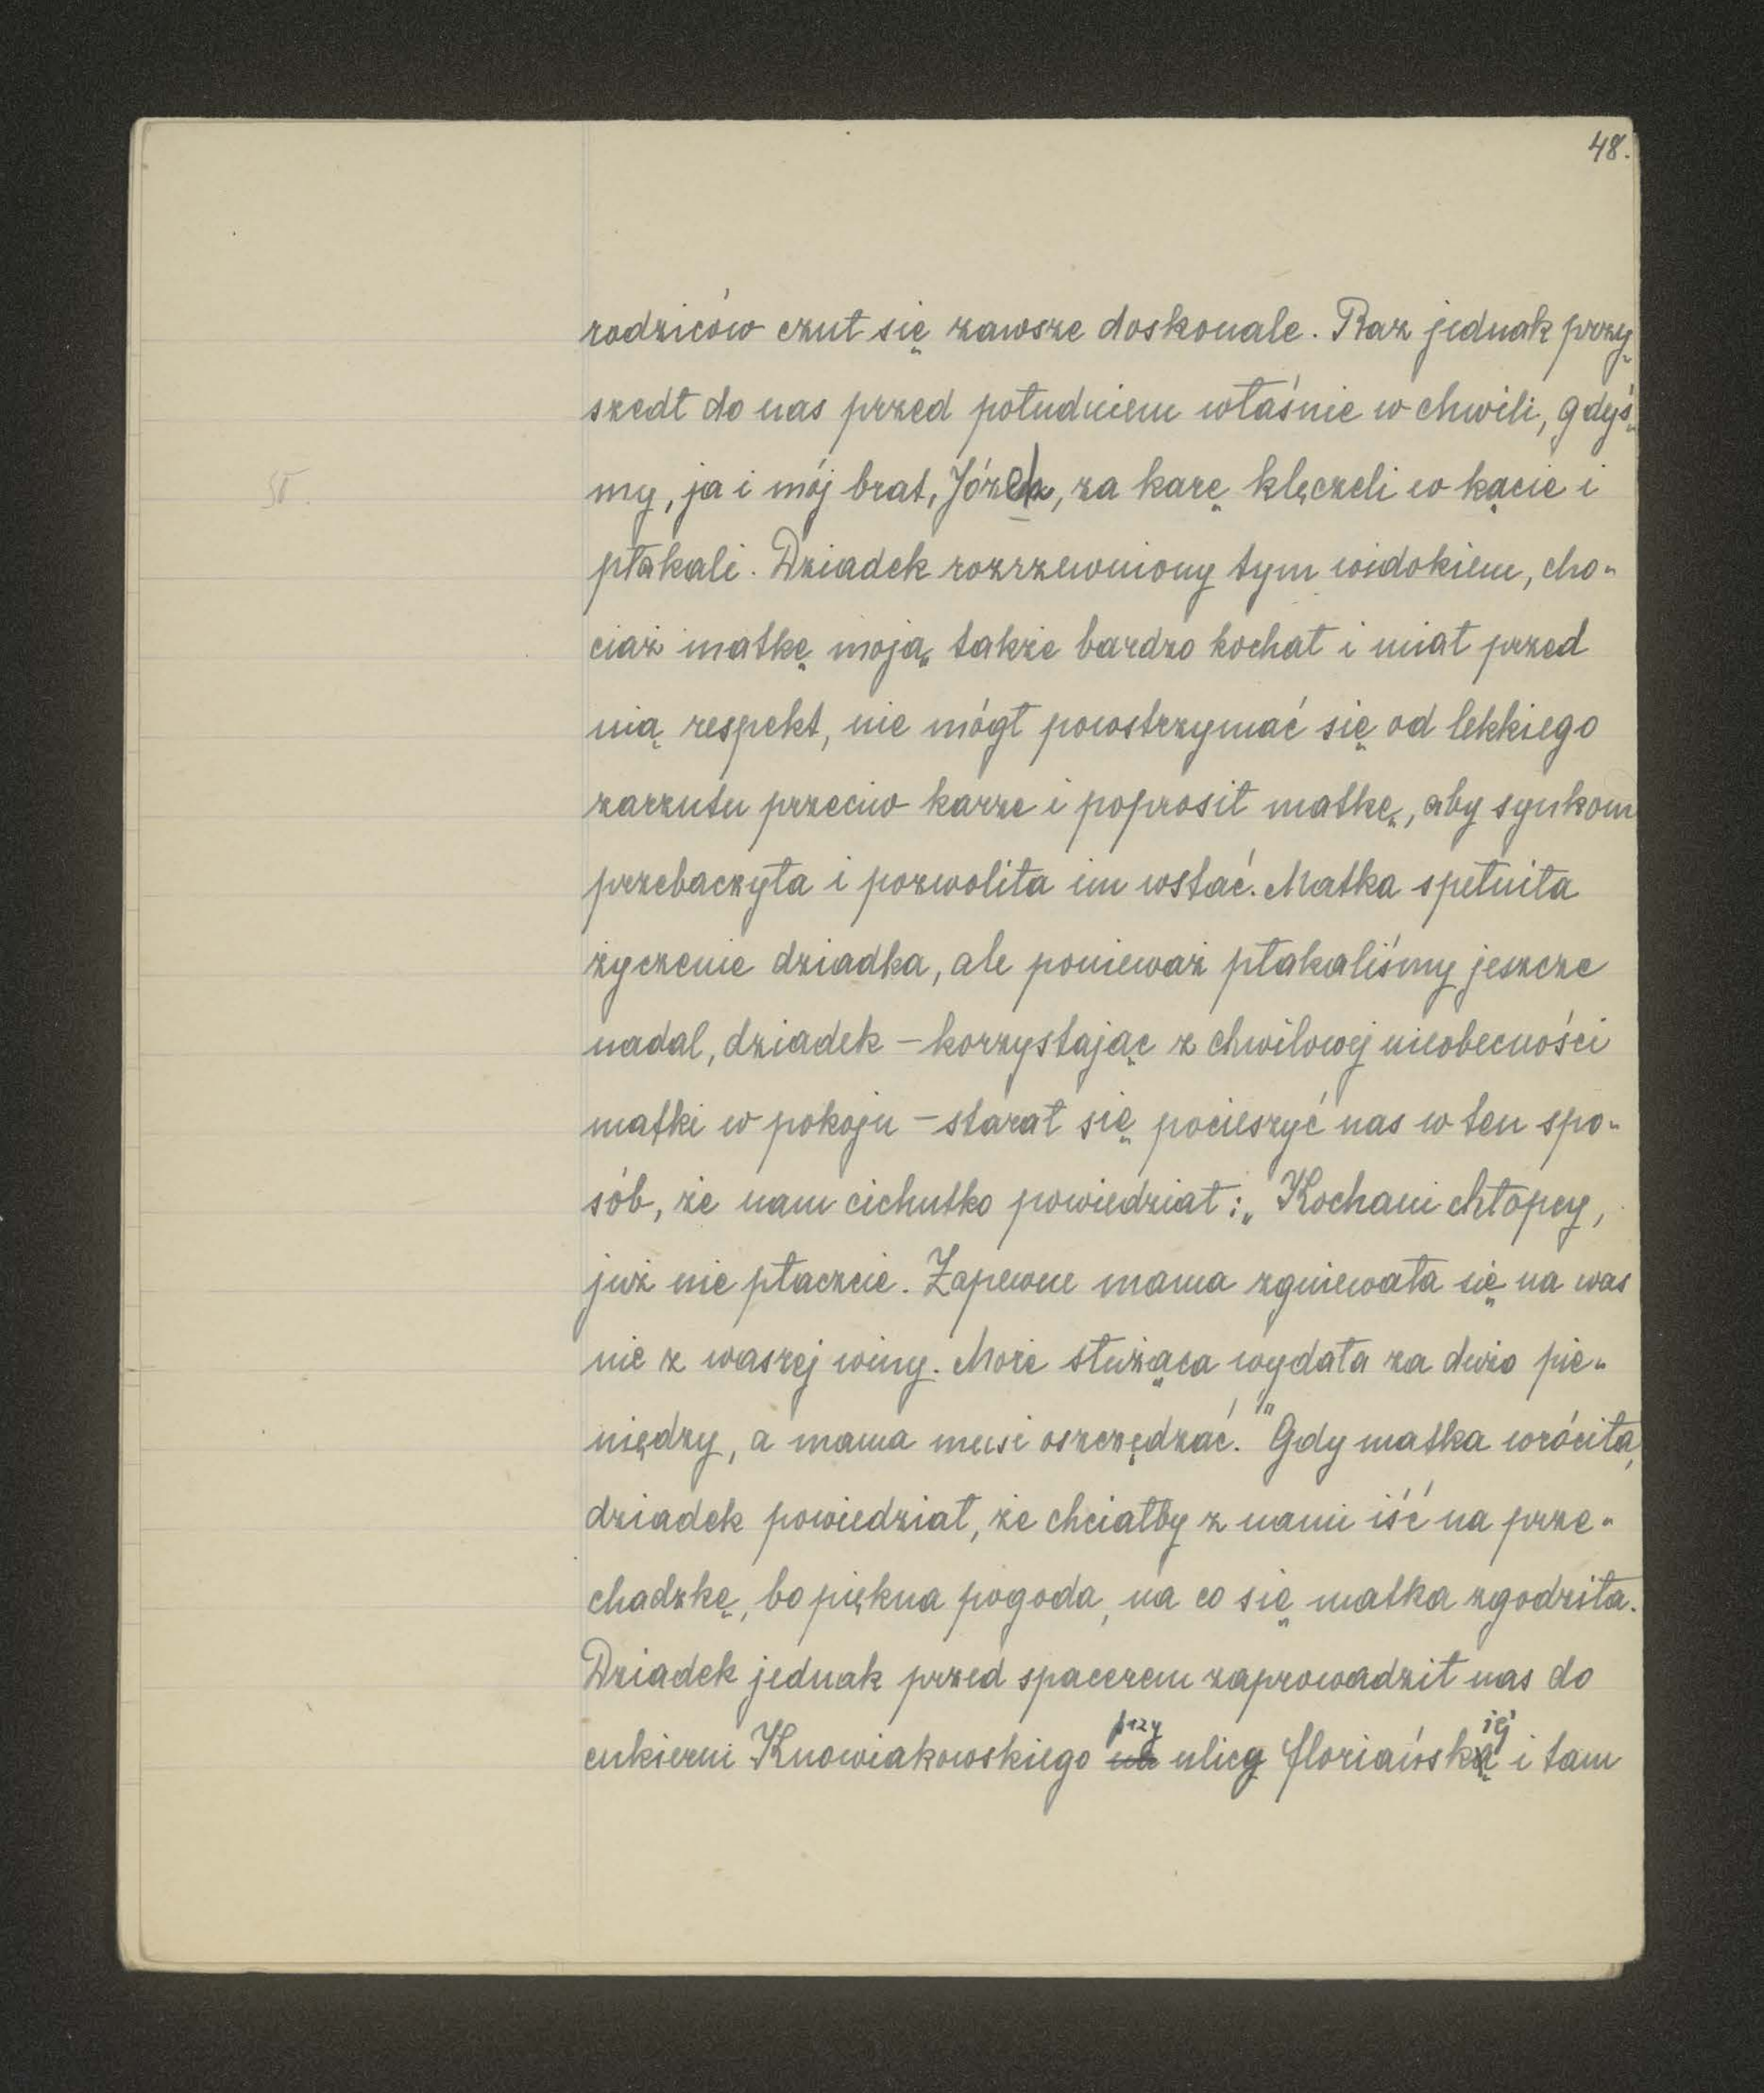 48.
rodziców czuł się zawsze doskonale. Raz jednak przy-
szedł do nas przed południem właśnie w chwili, gdyś-
50.
my, ja i mój brat, Józek, za karę klęczeli w kącie i
płakali. Dziadek rozrzewniony tym widokiem, cho-
ciaż matkę moją także bardzo kochał i miał przed
nią respekt, nie mógł powstrzymać się od lekkiego
zarzutu przeciw karze i poprosił matkę, aby synkom
przebaczyła i pozwoliła im wstać. Matka spełniła
życzenie dziadka, ale ponieważ płakaliśmy jeszcze
nadal, dziadek – korzystając z chwilowej nieobecności
matki w pokoju – starał się pocieszyć nas w ten spo-
sób, że nam cichutko powiedział: „Kochani chłopcy,
już nie płaczcie. Zapewne mama zgniewała się na was
nie z waszej winy. Może służąca wydała za dużo pie-
niędzy, a mama musi oszczędzać." Gdy matka wróciła,
dziadek powiedział, że chciałby z nami iść na prze-
chadzkę, bo piękna pogoda, na co się matka zgodziła.
Dziadek jednak przed spacerem zaprowadził nas do
cukierni Knowiakowskiego na przy ulicy floriańskiej i tam